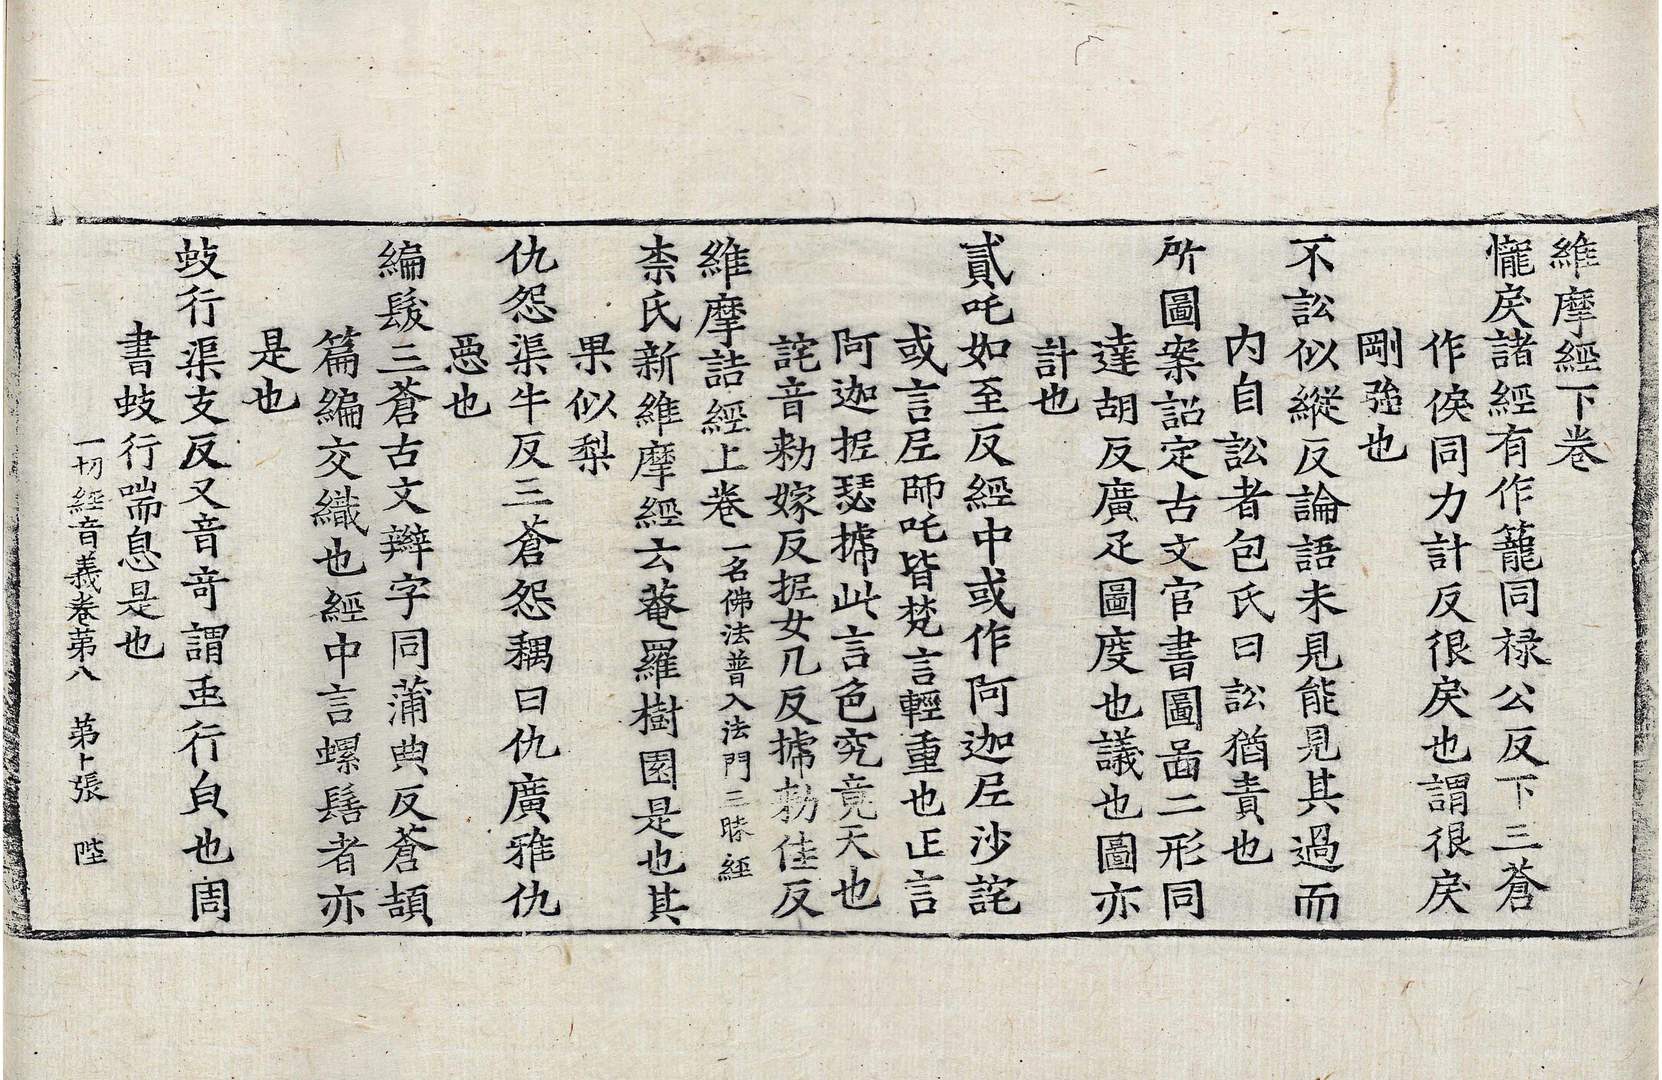 維摩經下卷
儱戾諸經有作籠同祿公反下三蒼
作候同力計反很戾也謂很戾
剛強也
不訟似縱反論語未見能見其過而
內自訟者包氏曰訟猶責也
所圖案詔定古文官書圖啚二形同
達胡反廣疋圖度也議也圖亦
計也
貳吒如至反經中或作阿迦尼沙詫
或言尼師吒皆梵言輕重也正言
阿迦抳瑟搋此言色究竟天也
詫音勑嫁反抳女几反搋勑佳反
維摩詰經上卷一名佛法普入法門三昧經
柰氏新維摩經云菴羅樹園是也其
果似梨
仇怨渠牛反三蒼怨耦曰仇廣雅仇
惡也
編髮三蒼古文辮字同蒲典反蒼頡
篇編交織也經中言螺髻者亦
是也
蚑行渠支反又音奇謂䖝行皃也周
書蚑行喘息是也
一切經音義卷第八 第卜張 陛